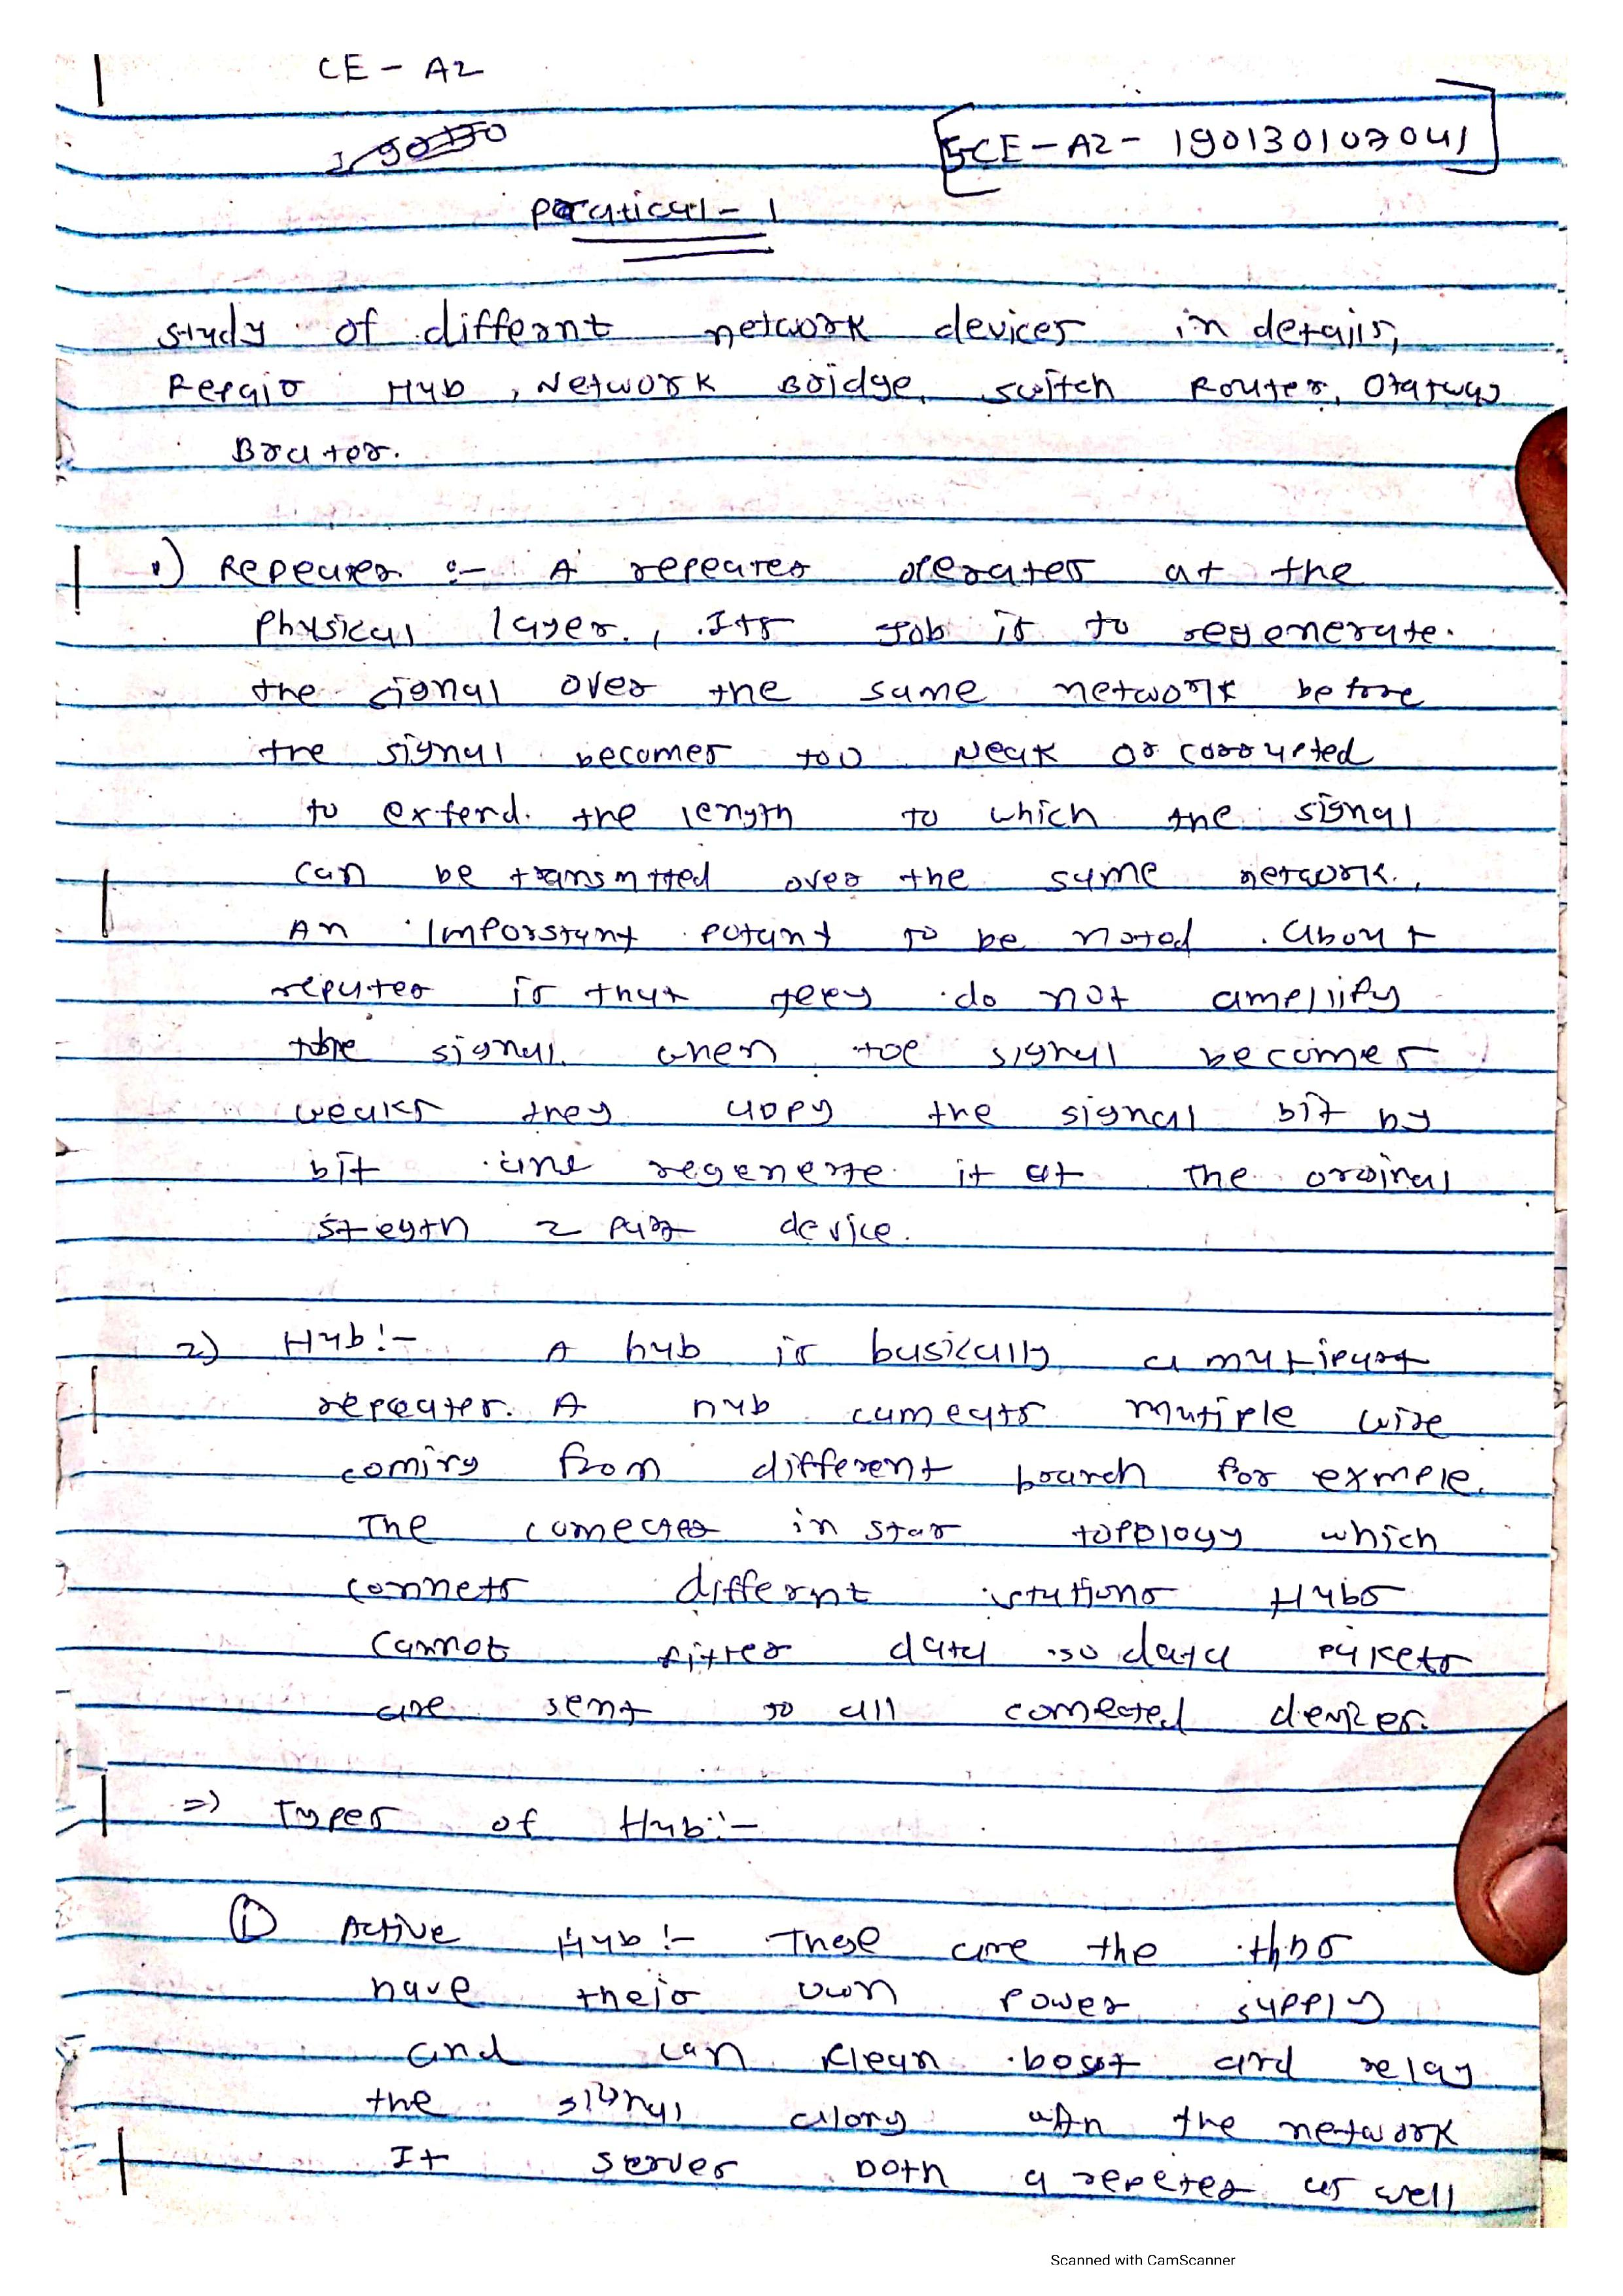 CE - A2
5CE - A2 - 190130107041
Pratical - 1
study of differnt network devices in details,
Hub, Network Bridge, switch Router,
Brater.
1) Repeater :- A repeater operates at the
Physical layer., Its Job is to regenerate.
the signal over the same network before
the signal becomes too weak or corrupted
to extend. the length to which the signal
can be transmtted over the same network.
An Imporstant potant to be noted. about
reputer is that they do not amplify
the signal. when toe signal becomes
weaks they copy the signal bit by
bit ane regenerte it at the orginal
stegth 2 part device.
2) Hub:- A hub is basically a mutiport
repeater. A hub connects mutiple wire
coming from different branch for exmple.
The connectes in star topology which
connets differnt stations Hubs
cannot filter data so data pakets
are sent to all connected devices.
=) Types of Hub:-
① Active Hub:- These are the
have their own power supply
and can clean boost and relay
the signal along with the network
It server both a repeter as well
Scanned with CamScanner